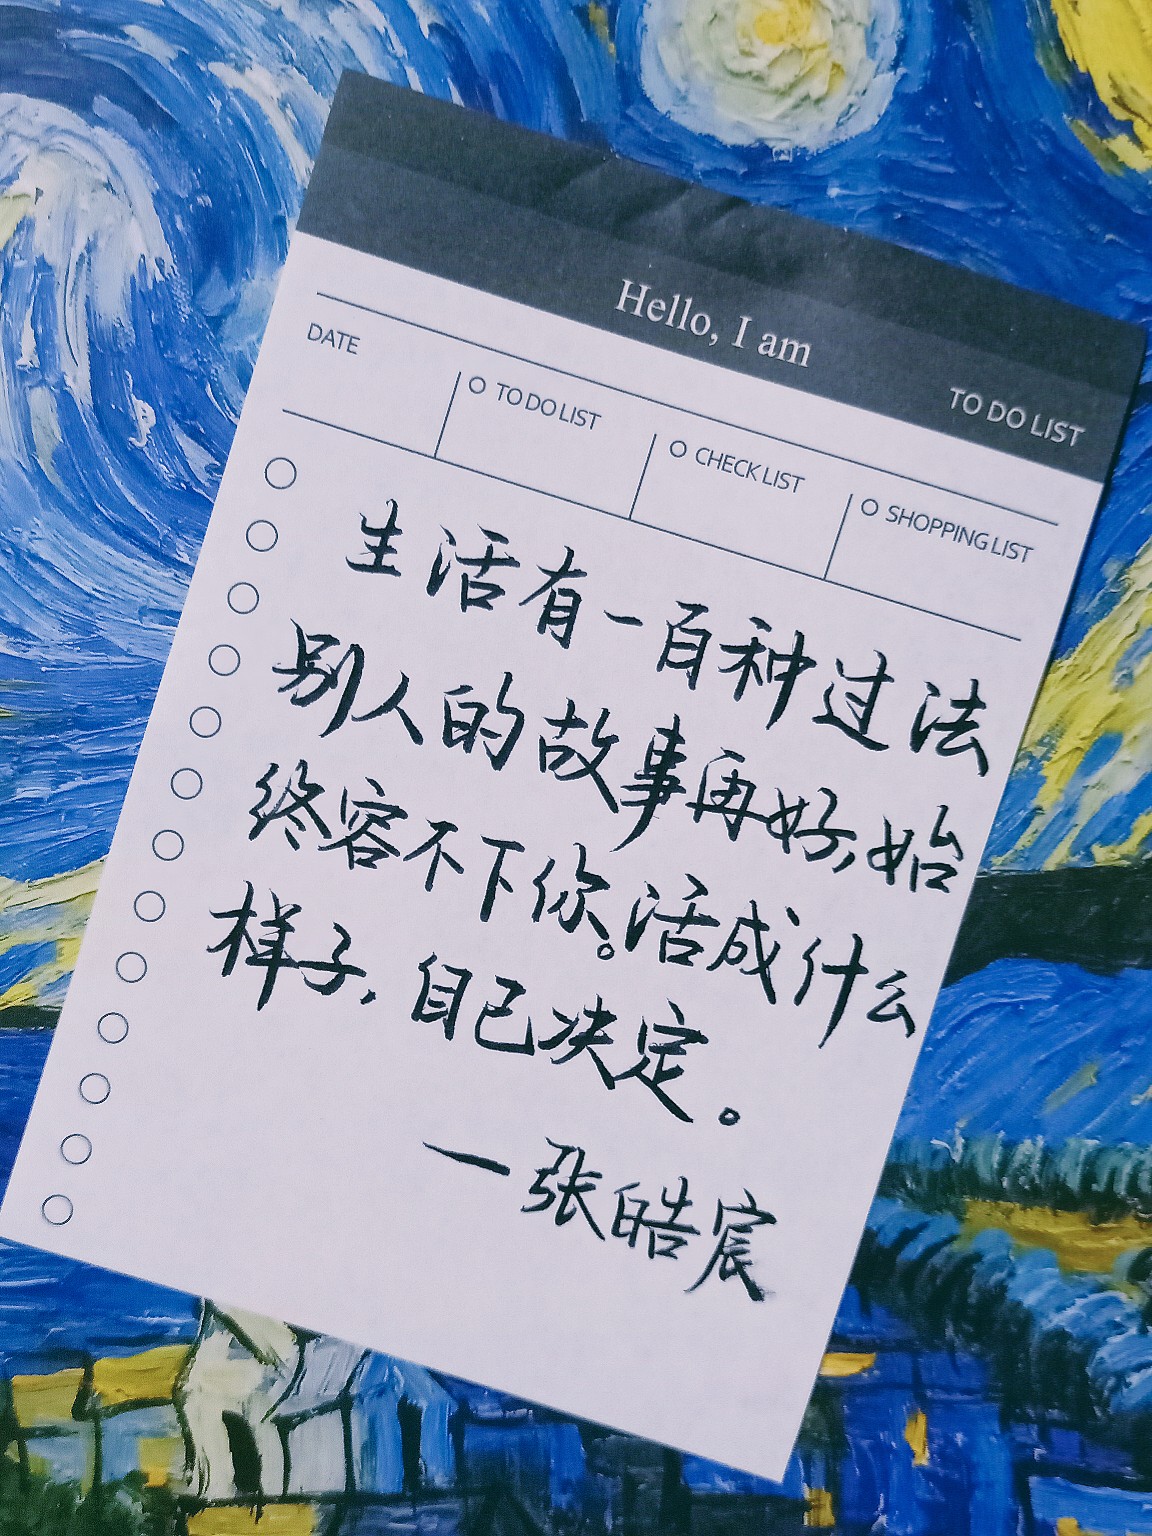 Hello, I am
TO DO LIST
DATE
TO DO LIST
CHECK LIST
SHOPPING LIST
生活有一百种过法
别人的故事再好,始
终容不下你。活成什么
样子,自己决定。
一张皓宸